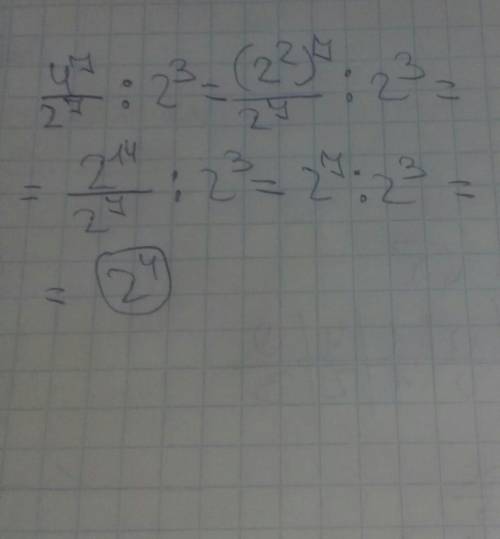 4⁷/2⁷ : 2³ = (2²)⁷/2⁷ : 2³ =
= 2¹⁴/2⁷ : 2³ = 2⁷ : 2³ =
= 2⁴